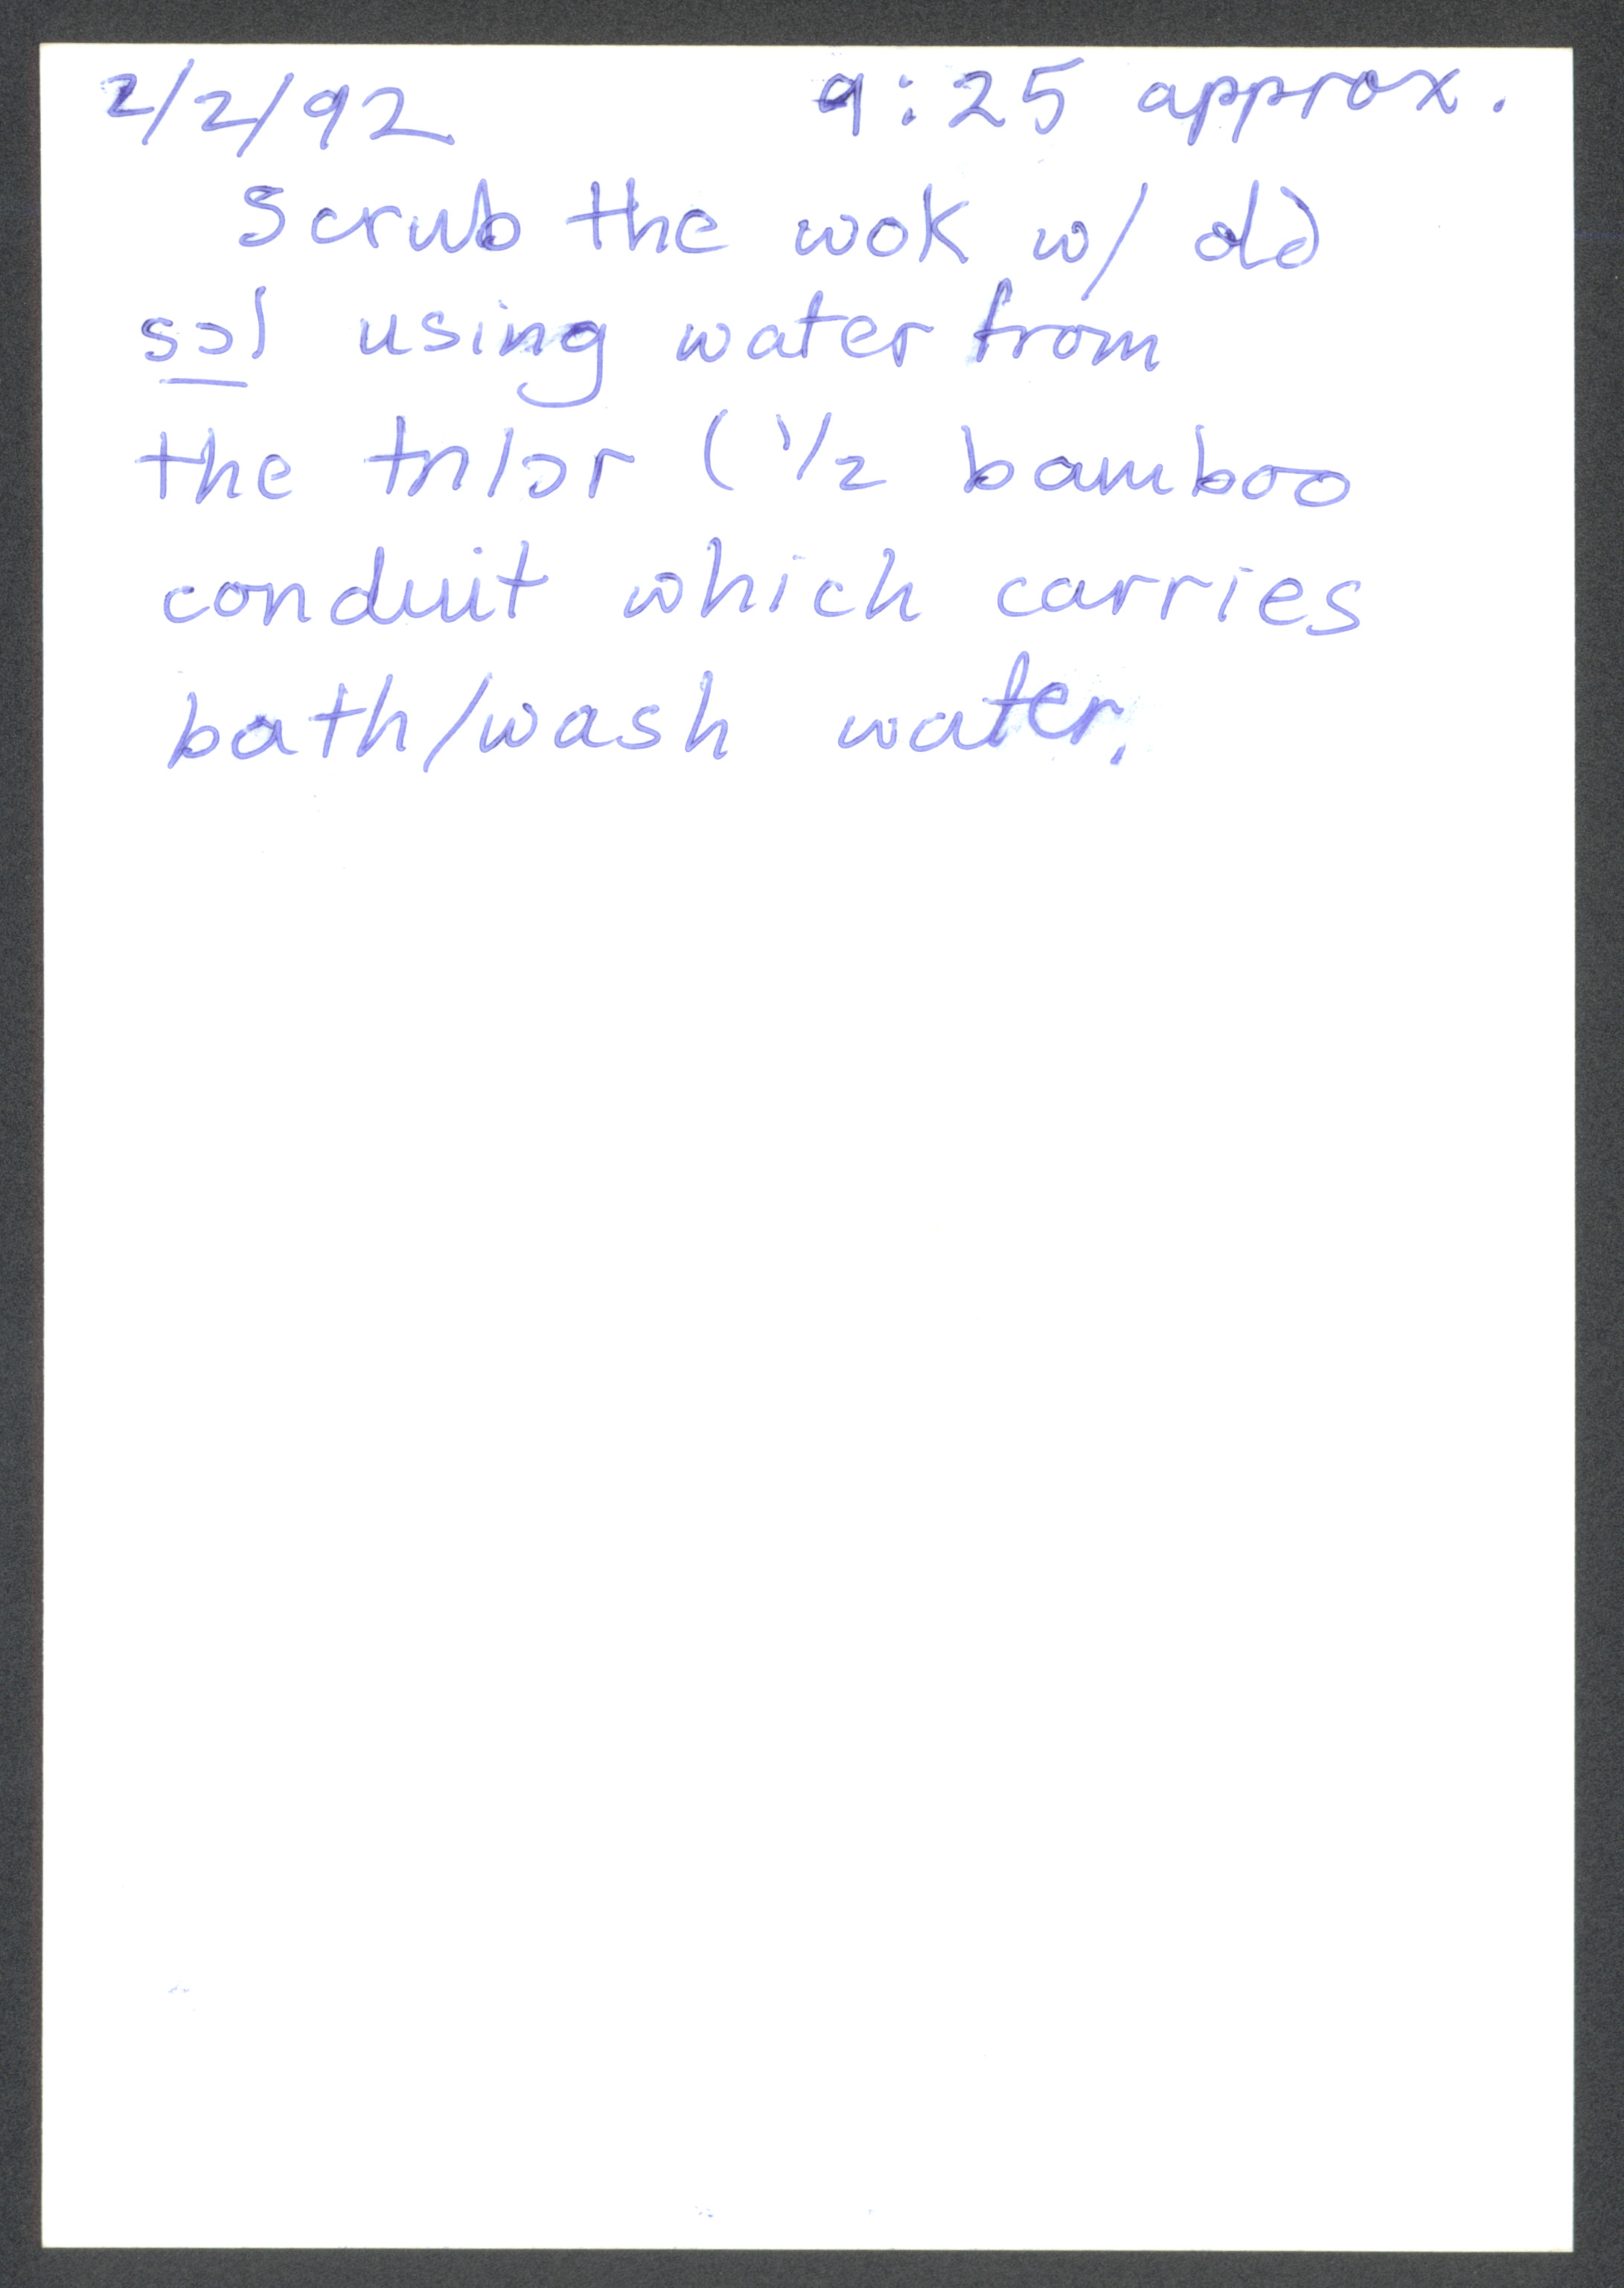 2/2/92 9:25 approx.
Scrub the wok w/ old
sɔl using water from
the tnlɔr ( 1/2 bamboo
conduit which carries
bath/wash water.